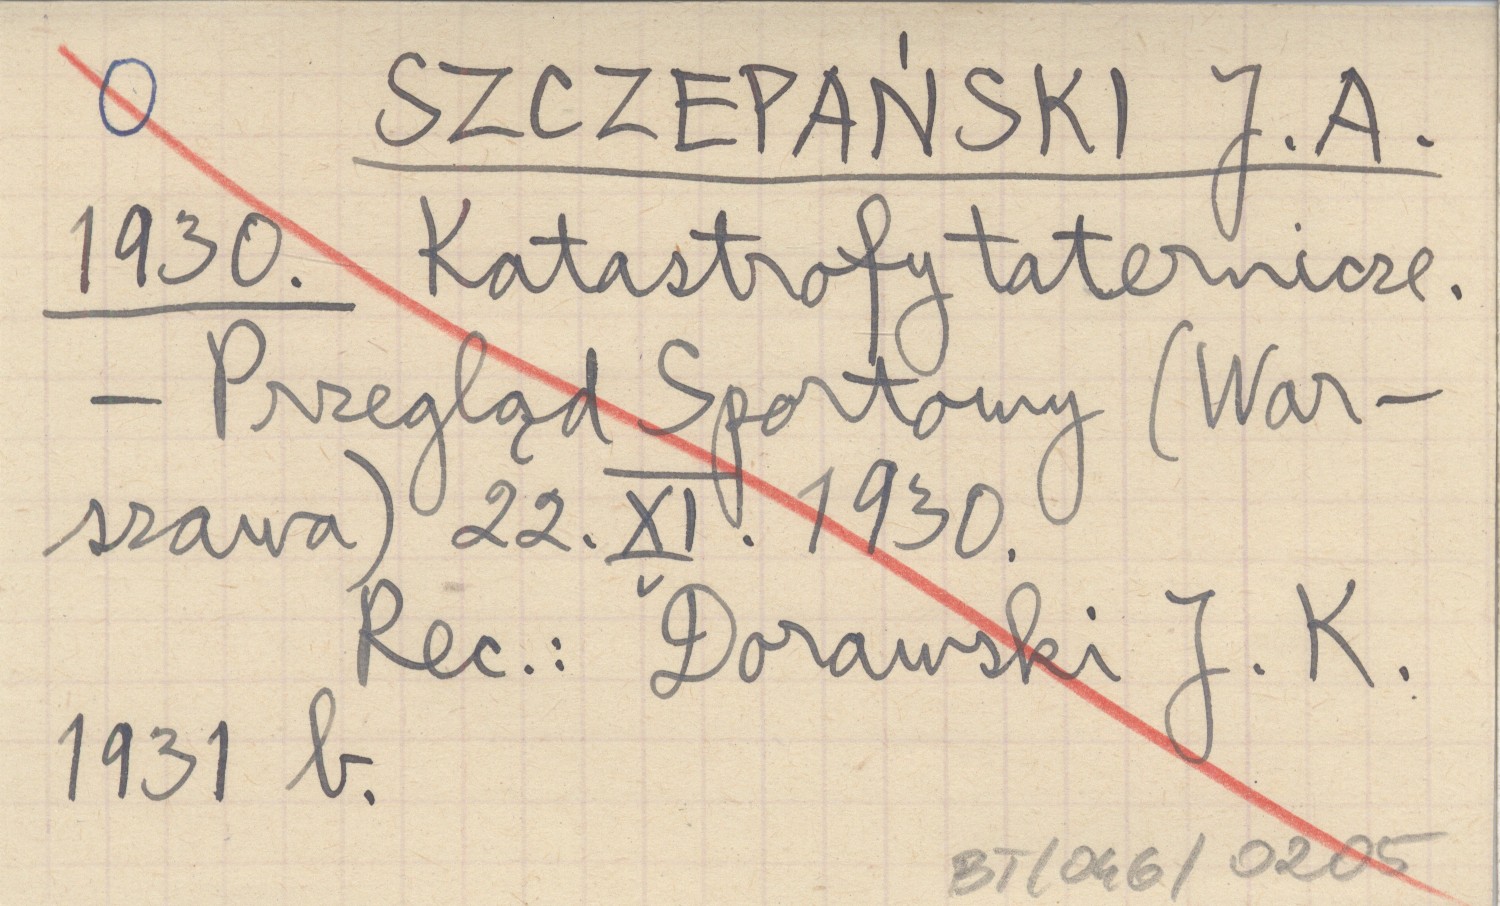 O SZCZEPAŃSKI J. A.
1930. Katastrofy taternicze.
– Przegląd Sportowy (War-
szawa) 22. XI. 1930.
Rec.: Dorawski J. K.
1931 b.
BT/046/0205